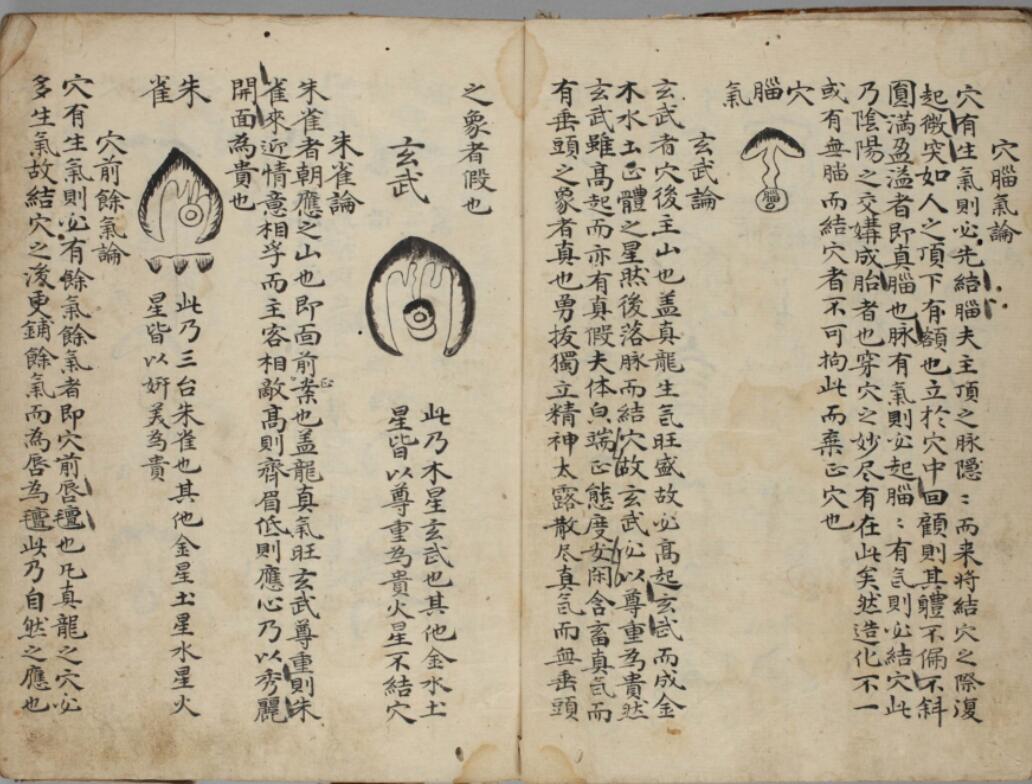 穴腦氣論
穴有生氣則必先結腦夫主頂之脉隱〻而来將結穴之際復
起微突如人之頂下有額也立於穴中回顧則其軆不偏不斜
圓滿盈溢者即真腦也脉有氣則必起腦〻有氣則必結穴此
乃陰陽之交媾成胎者也穿穴之妙尽有在此矣然造化不一
或有無腦而結穴者不可拘此而棄正穴也
穴腦氣
腦
玄武論
玄武者穴後主山也盖真龍生氣旺盛故必高起玄武而成金
木水土正體之星然後落脉而結穴故玄武必以尊重為貴然
玄武雖高起而亦有真假夫体皃端正態度安閑含畜真氣而
有垂頭之象者真也勇拔獨立精神太露散尽真氣而無垂頭
之象者假也
玄武
此乃木星玄武也其他金水土
星皆以尊重為貴火星不結穴
朱雀論
朱雀者朝應之山也即面前正案也盖龍真氣旺玄武尊重則朱
雀來近情意相孚而主客相敵高則齊眉低則應心乃以秀麗
開面為貴也
朱雀
此乃三台朱雀也其他金星土星水星火
星皆以妍美為貴
穴前餘氣論
穴有生氣則必有餘氣餘氣者即穴前唇氊也凡真龍之穴必
多生氣故結穴之後更鋪餘氣而為唇為氊此乃自然之應也